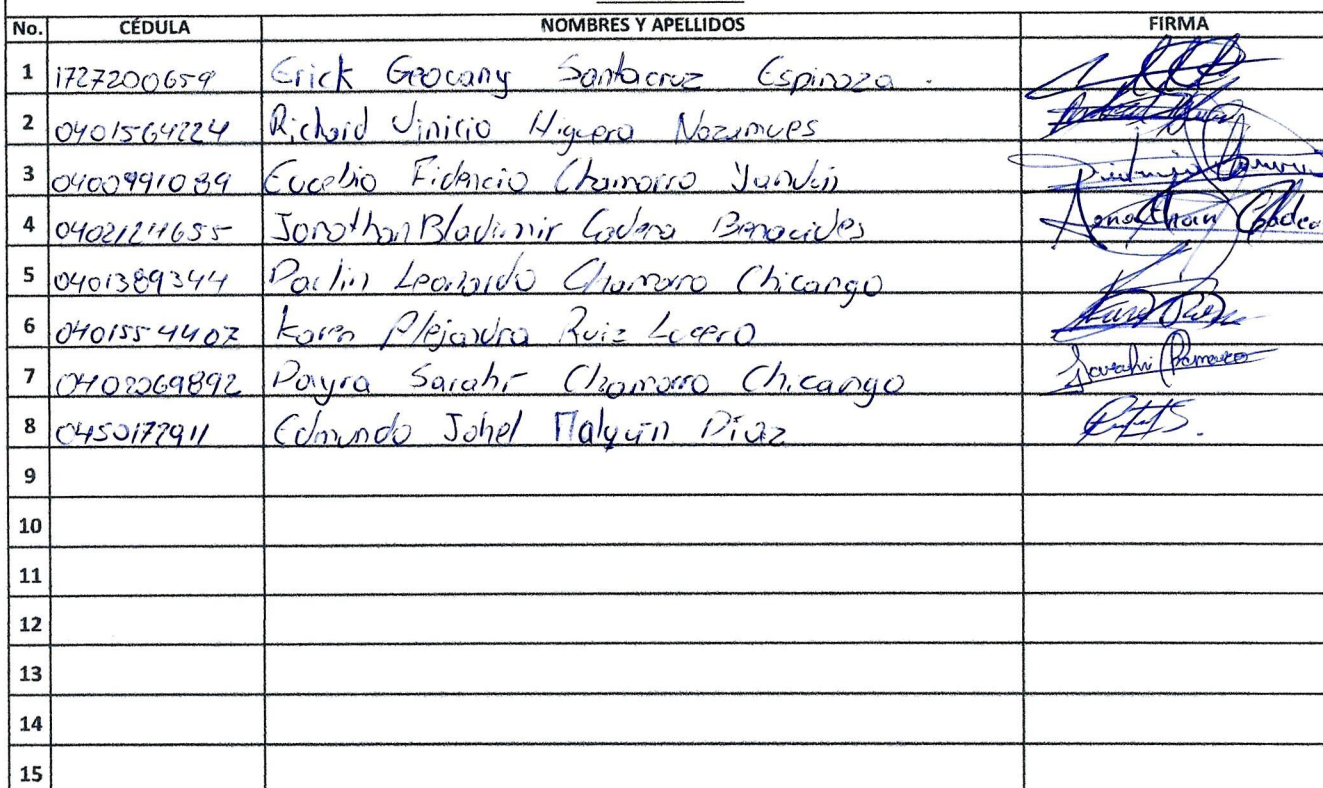 No. CÉDULA NOMBRES Y APELLIDOS FIRMA
1 1727200659 Erick Geocany Santacruz Espinoza.
2 0401564224 Richard Vinicio Higuera
3 0400991089 Eucebio Fidencio Chamorro
4 0402124655 Jonathan Bladimir Cadena Benavides Jonathan
5 0401389344 Leonardo Chamorro Chicango
6 0401554407 Karen Alejandra Ruiz Lucero
7 0402069892 Dayra Sarahi Chamorro Chicango Sarahi Chamorro
8 0450172911 Edmundo Johel Malquin Diaz
9
10
11
12
13
14
15